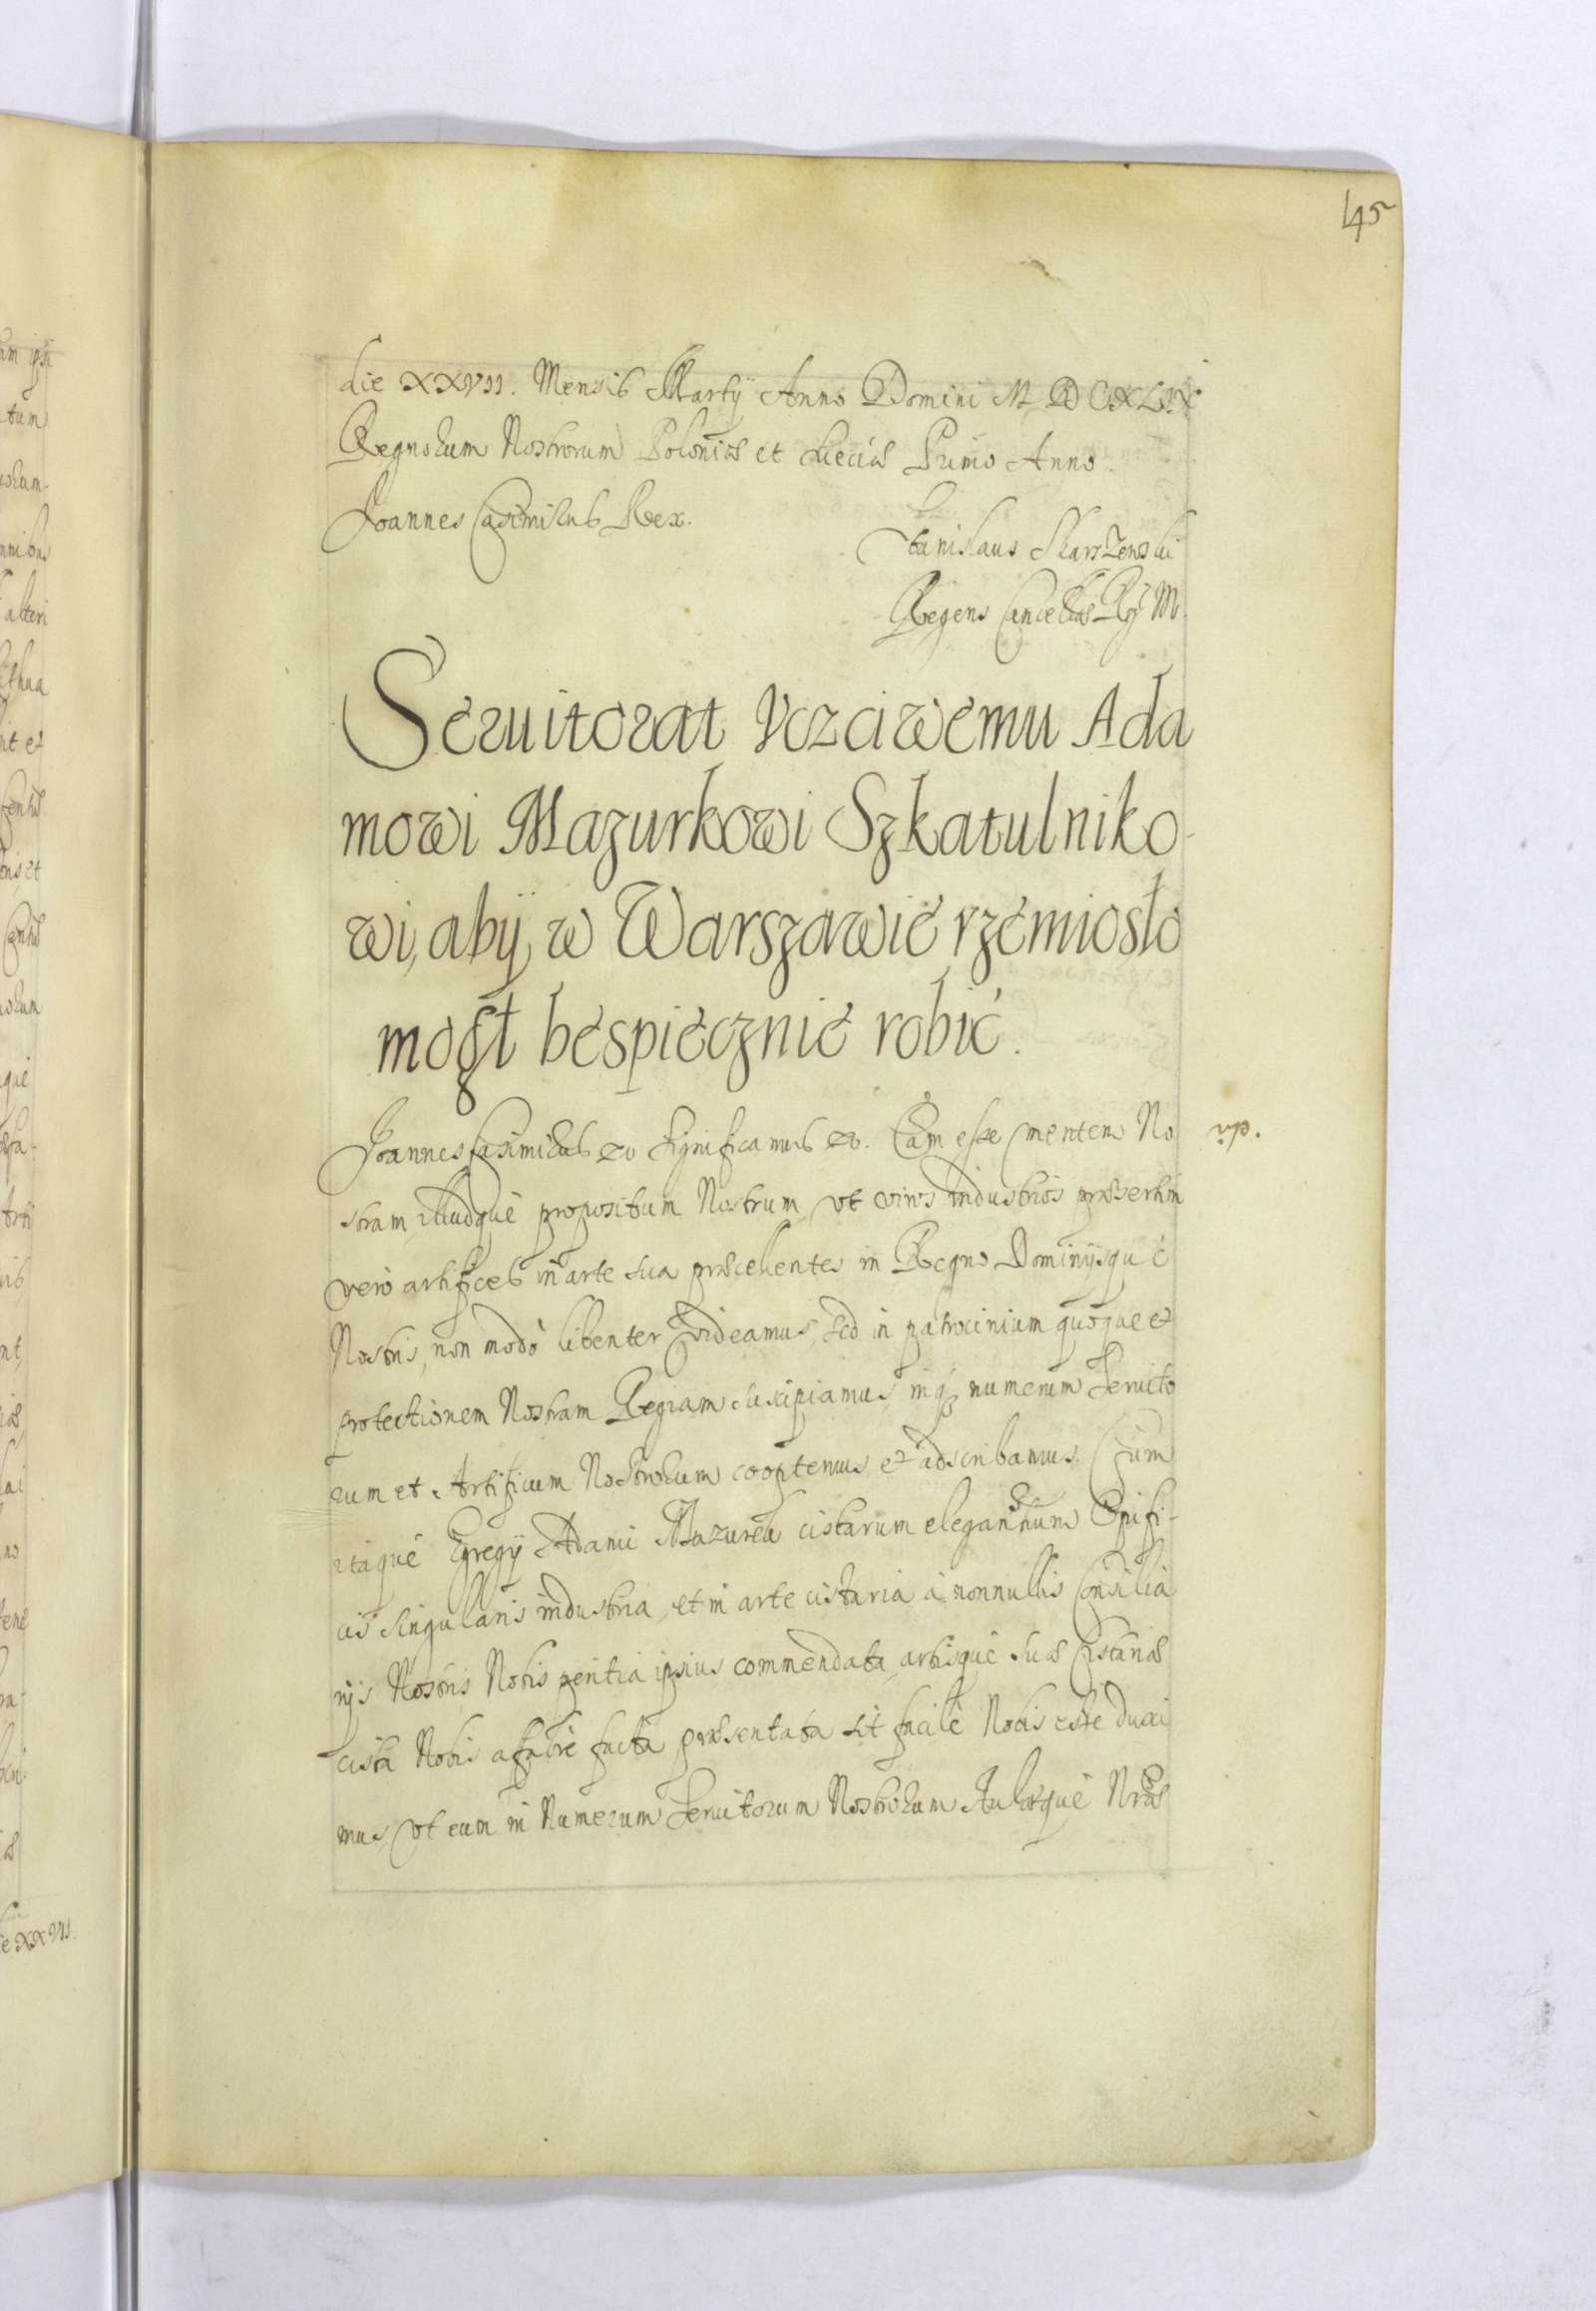 45
die XXVII. Mensis Martÿ Anno Domini M DCXLIX
Regnorum Nostrorum Poloniæ et Sueciæ Primo Anno.
Joannes Casimirus Rex.
Stanislaus Skarszewski
Regens Cancellæ Rg M.
Seruitorat Vczciwemu Ada
mowi Mazurkowi Szkatulniko-
wi, abÿ w Warszawie rzemiosło
mogł bespiecznie robić.
Joannes Casimirus &c Significamus &c. Eam esse mentem No
stram, illudque propositum Nostrum, vt viros industrios præsertim
vero artifices in arte sua præcellentes in Regno Dominÿsque
Nostris, non modò libenter videamus, sed in patrocinium quoque et
protectionem Nostram Regiam suscipiamus, inq; numerum Seruito
rum et Artificum Nostrorum cooptemus, et adscribamus. Cum
itaque Egregÿ Adami Mazurek cistarum elegantium Opifi-
cis singularis industria, et in arte cistaria à nonnullis Consilia
rÿs Nostris Nobis peritia ipsius commendata, artisque suæ Cistariæ
cista Nobis affabre facta præsentata sit facilè Nobis esse duxi
mus, vt eum in Numerum Seruitorum Nostrorum Aulæque Nræ